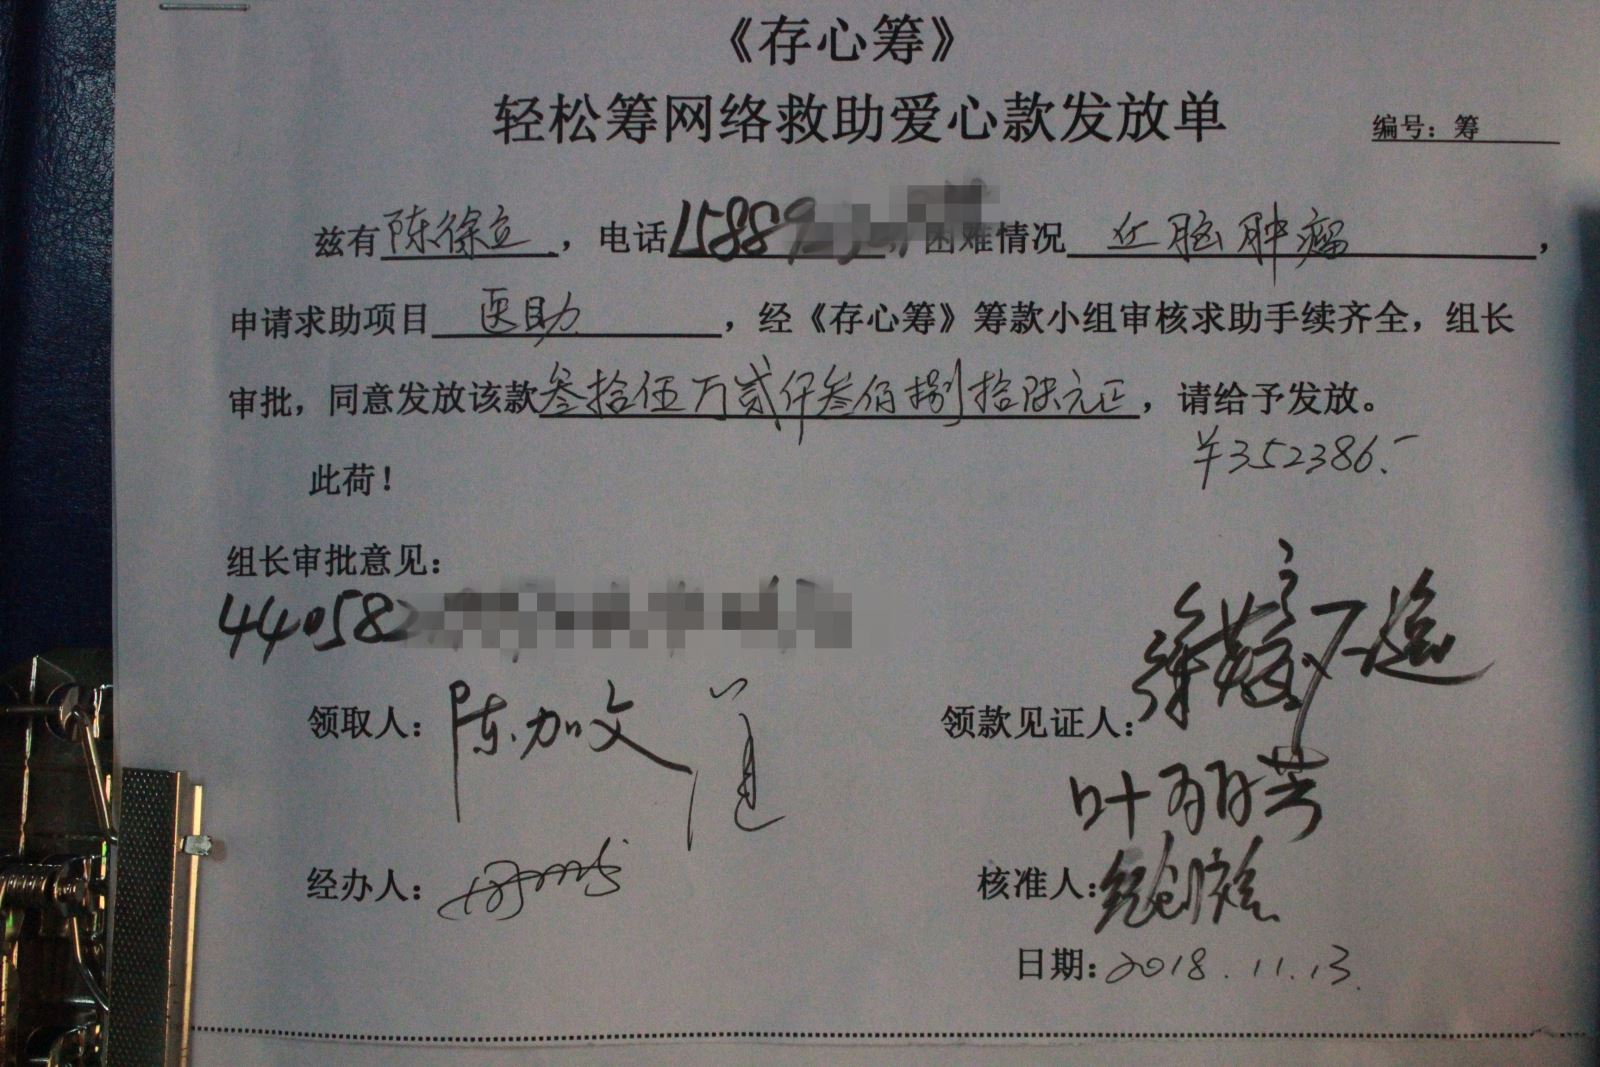 《存心筹》
轻松筹网络救助爱心款发放单
编号：筹
兹有陈徐立，电话15889 困难情况 患脑肿瘤，
申请求助项目 医助，经《存心筹》筹款小组审核求助手续齐全，组长
审批，同意发放该款叁拾伍万贰仟叁佰捌拾陆元正，请给予发放。
¥352386.-
此荷！
组长审批意见：
440582
领取人：陈加文
领款见证人：
叶丽芳
经办人：
核准人：
日期：2018.11.13